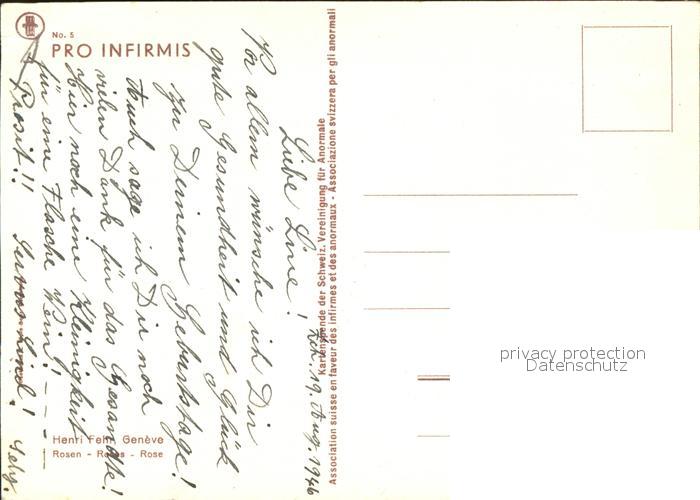 No. 5
PRO INFIRMIS
Zch, 19. Aug. 1946
Liebe Line!
Vor allem wünsche ich Dir
gute Gesundheit und Glück
zu Deinem Geburtstage!
Auch sage ich Dir noch
vielen Dank für das Gesandte!
Hier noch eine Kleinigkeit
für eine Flasche Wein! - - -
Prosit!!
Henri Fehr, Genève
Rosen - Roses - Rose
Kartenspende der Schweiz. Vereinigung für Anormale
Association suisse en faveur des infirmes et des anormaux - Associazione svizzera per gli anormali
privacy protection
Datenschutz